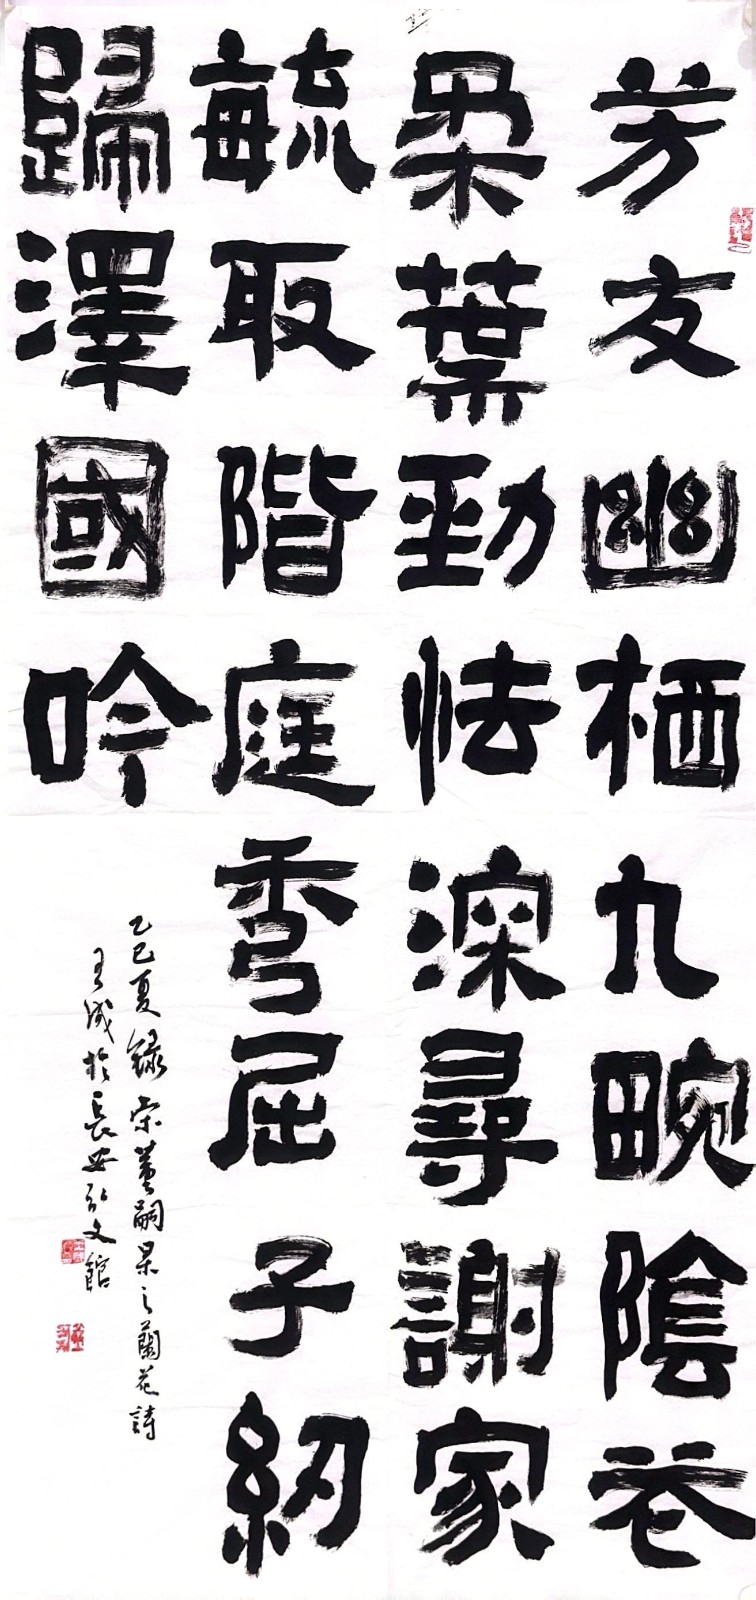 芳友幽栖九畹陰花
柔葉勁怯深尋謝家
毓取階庭秀屈子紉
歸澤國吟
乙巳夏録宋董嗣杲之蘭花詩
王於長安弘文館